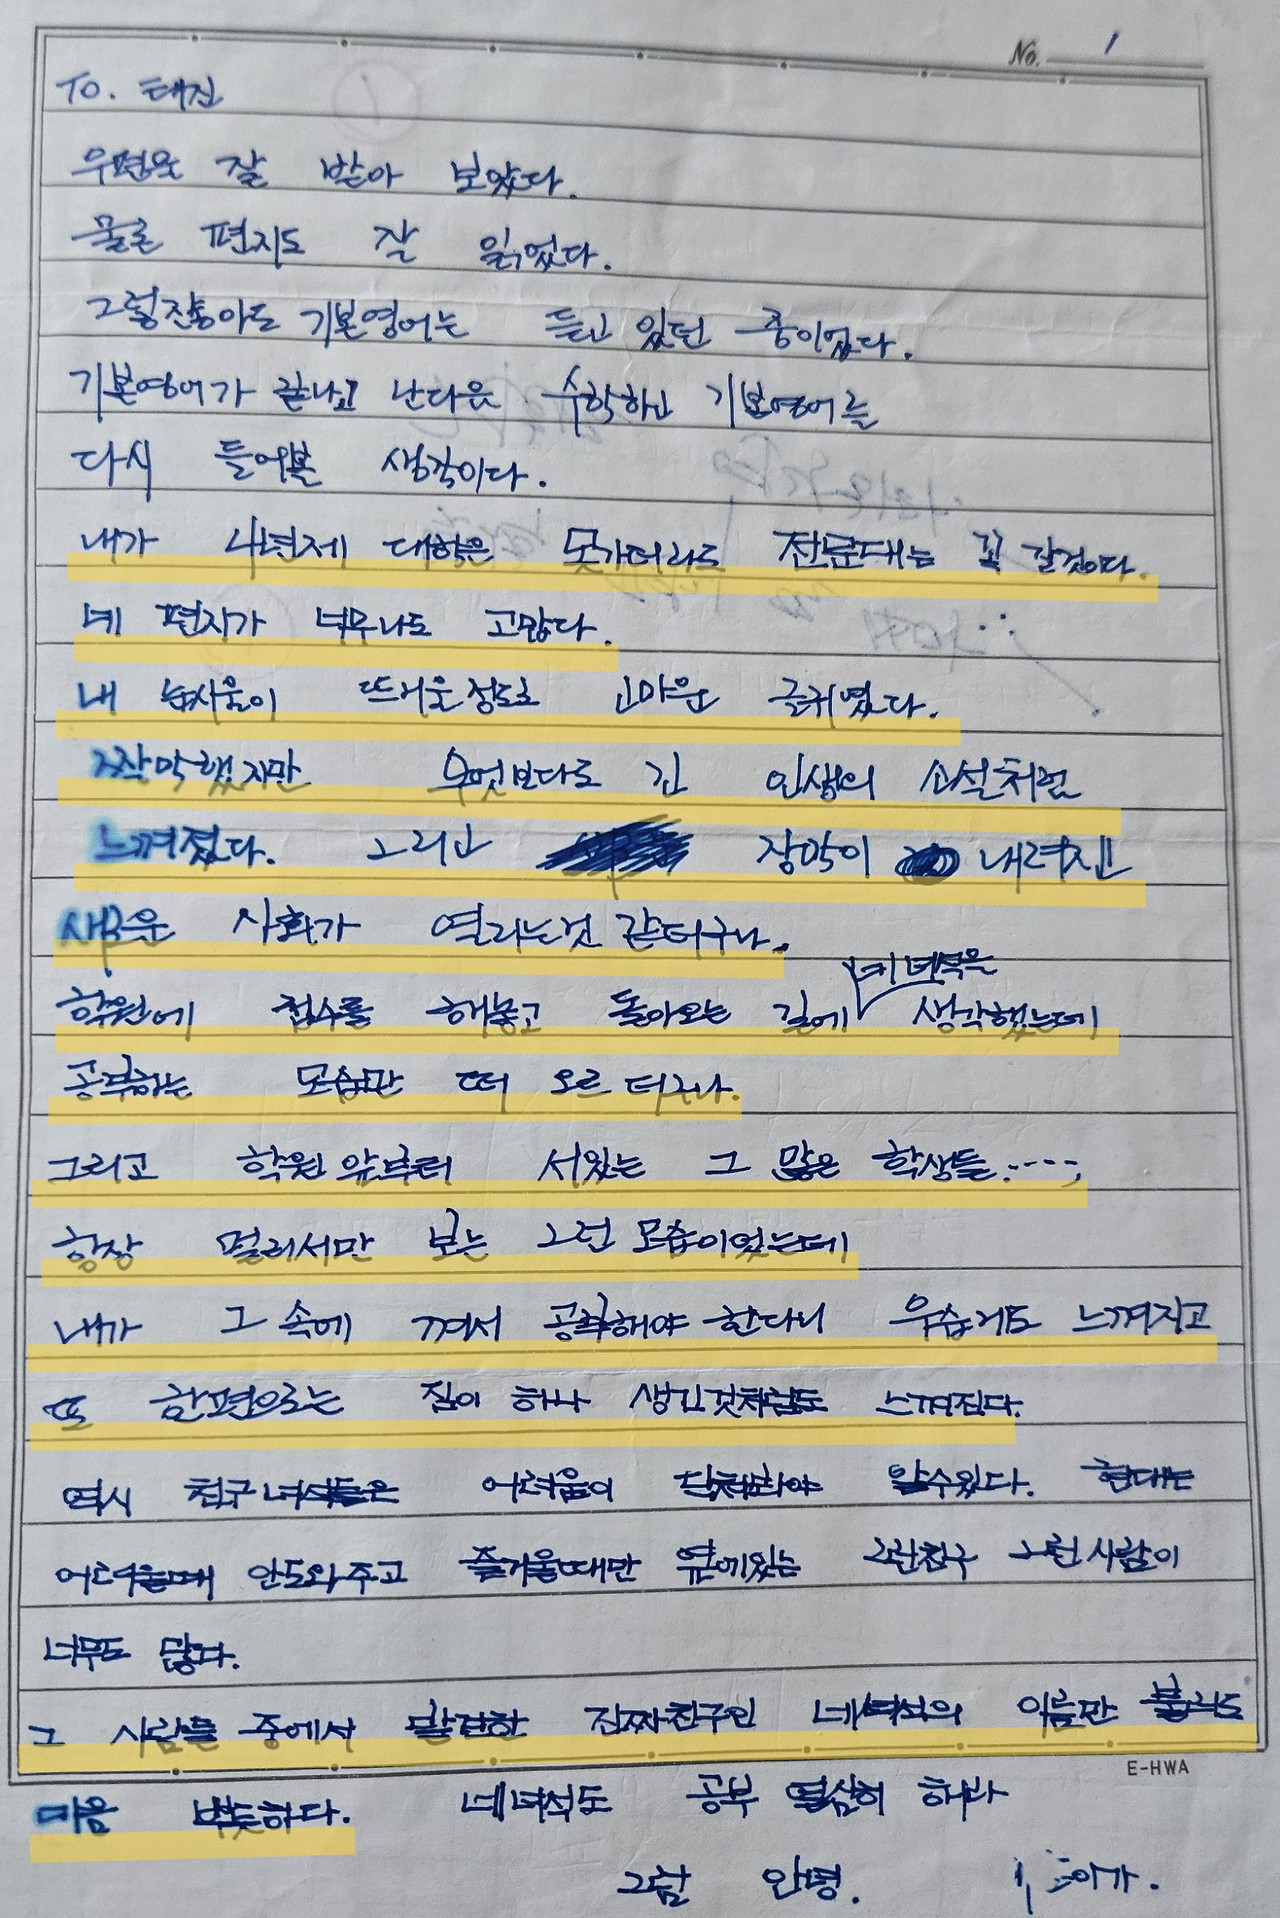 No. 1
TO. 태진
우편은 잘 받아 보았다.
물론 편지도 잘 읽었다.
그렇잖아도 기본영어는 듣고 있던 중이었다.
기본영어가 끝나고 난다음 수학하고 기본영어를
다시 들어볼 생각이다.
내가 사년제 대학은 못가더라도 전문대는 꼭 갈것이다.
네 편지가 너무나도 고맙다.
내 눈시울이 뜨거울정도로 고마운 글귀였다.
짤막했지만 무엇보다도 긴 인생의 소설처럼
느껴졌다. 그리고 장막이 내려지고
새로운 사회가 열리는것 같더구나.
학원에 접수를 해놓고 돌아오는 길에 네 녀석을 생각했는데
공부하는 모습만 떠 오르 더구나.
그리고 학원앞부터 서있는 그 많은 학생들.----,
항상 멀리서만 보는 그런 모습이었는데
내가 그 속에 껴서 공부해야 한다니 우습게도 느껴지고
또 한편으로는 짐이 하나 생긴것처럼도 느껴진다.
역시 친구녀석들은 어려움이 닥쳐봐야 알수있다. 현대는
어려울때 안도와주고 즐거울때만 옆에있는 그런친구 그런사람이
너무도 많다.
그 사람들 중에서 발견한 진짜친구인 네녀석의 이름만 불러도
마음 뿌듯하다. 네녀석도 공부 열심히 해라
그럼 안녕. 이가.
E-HWA